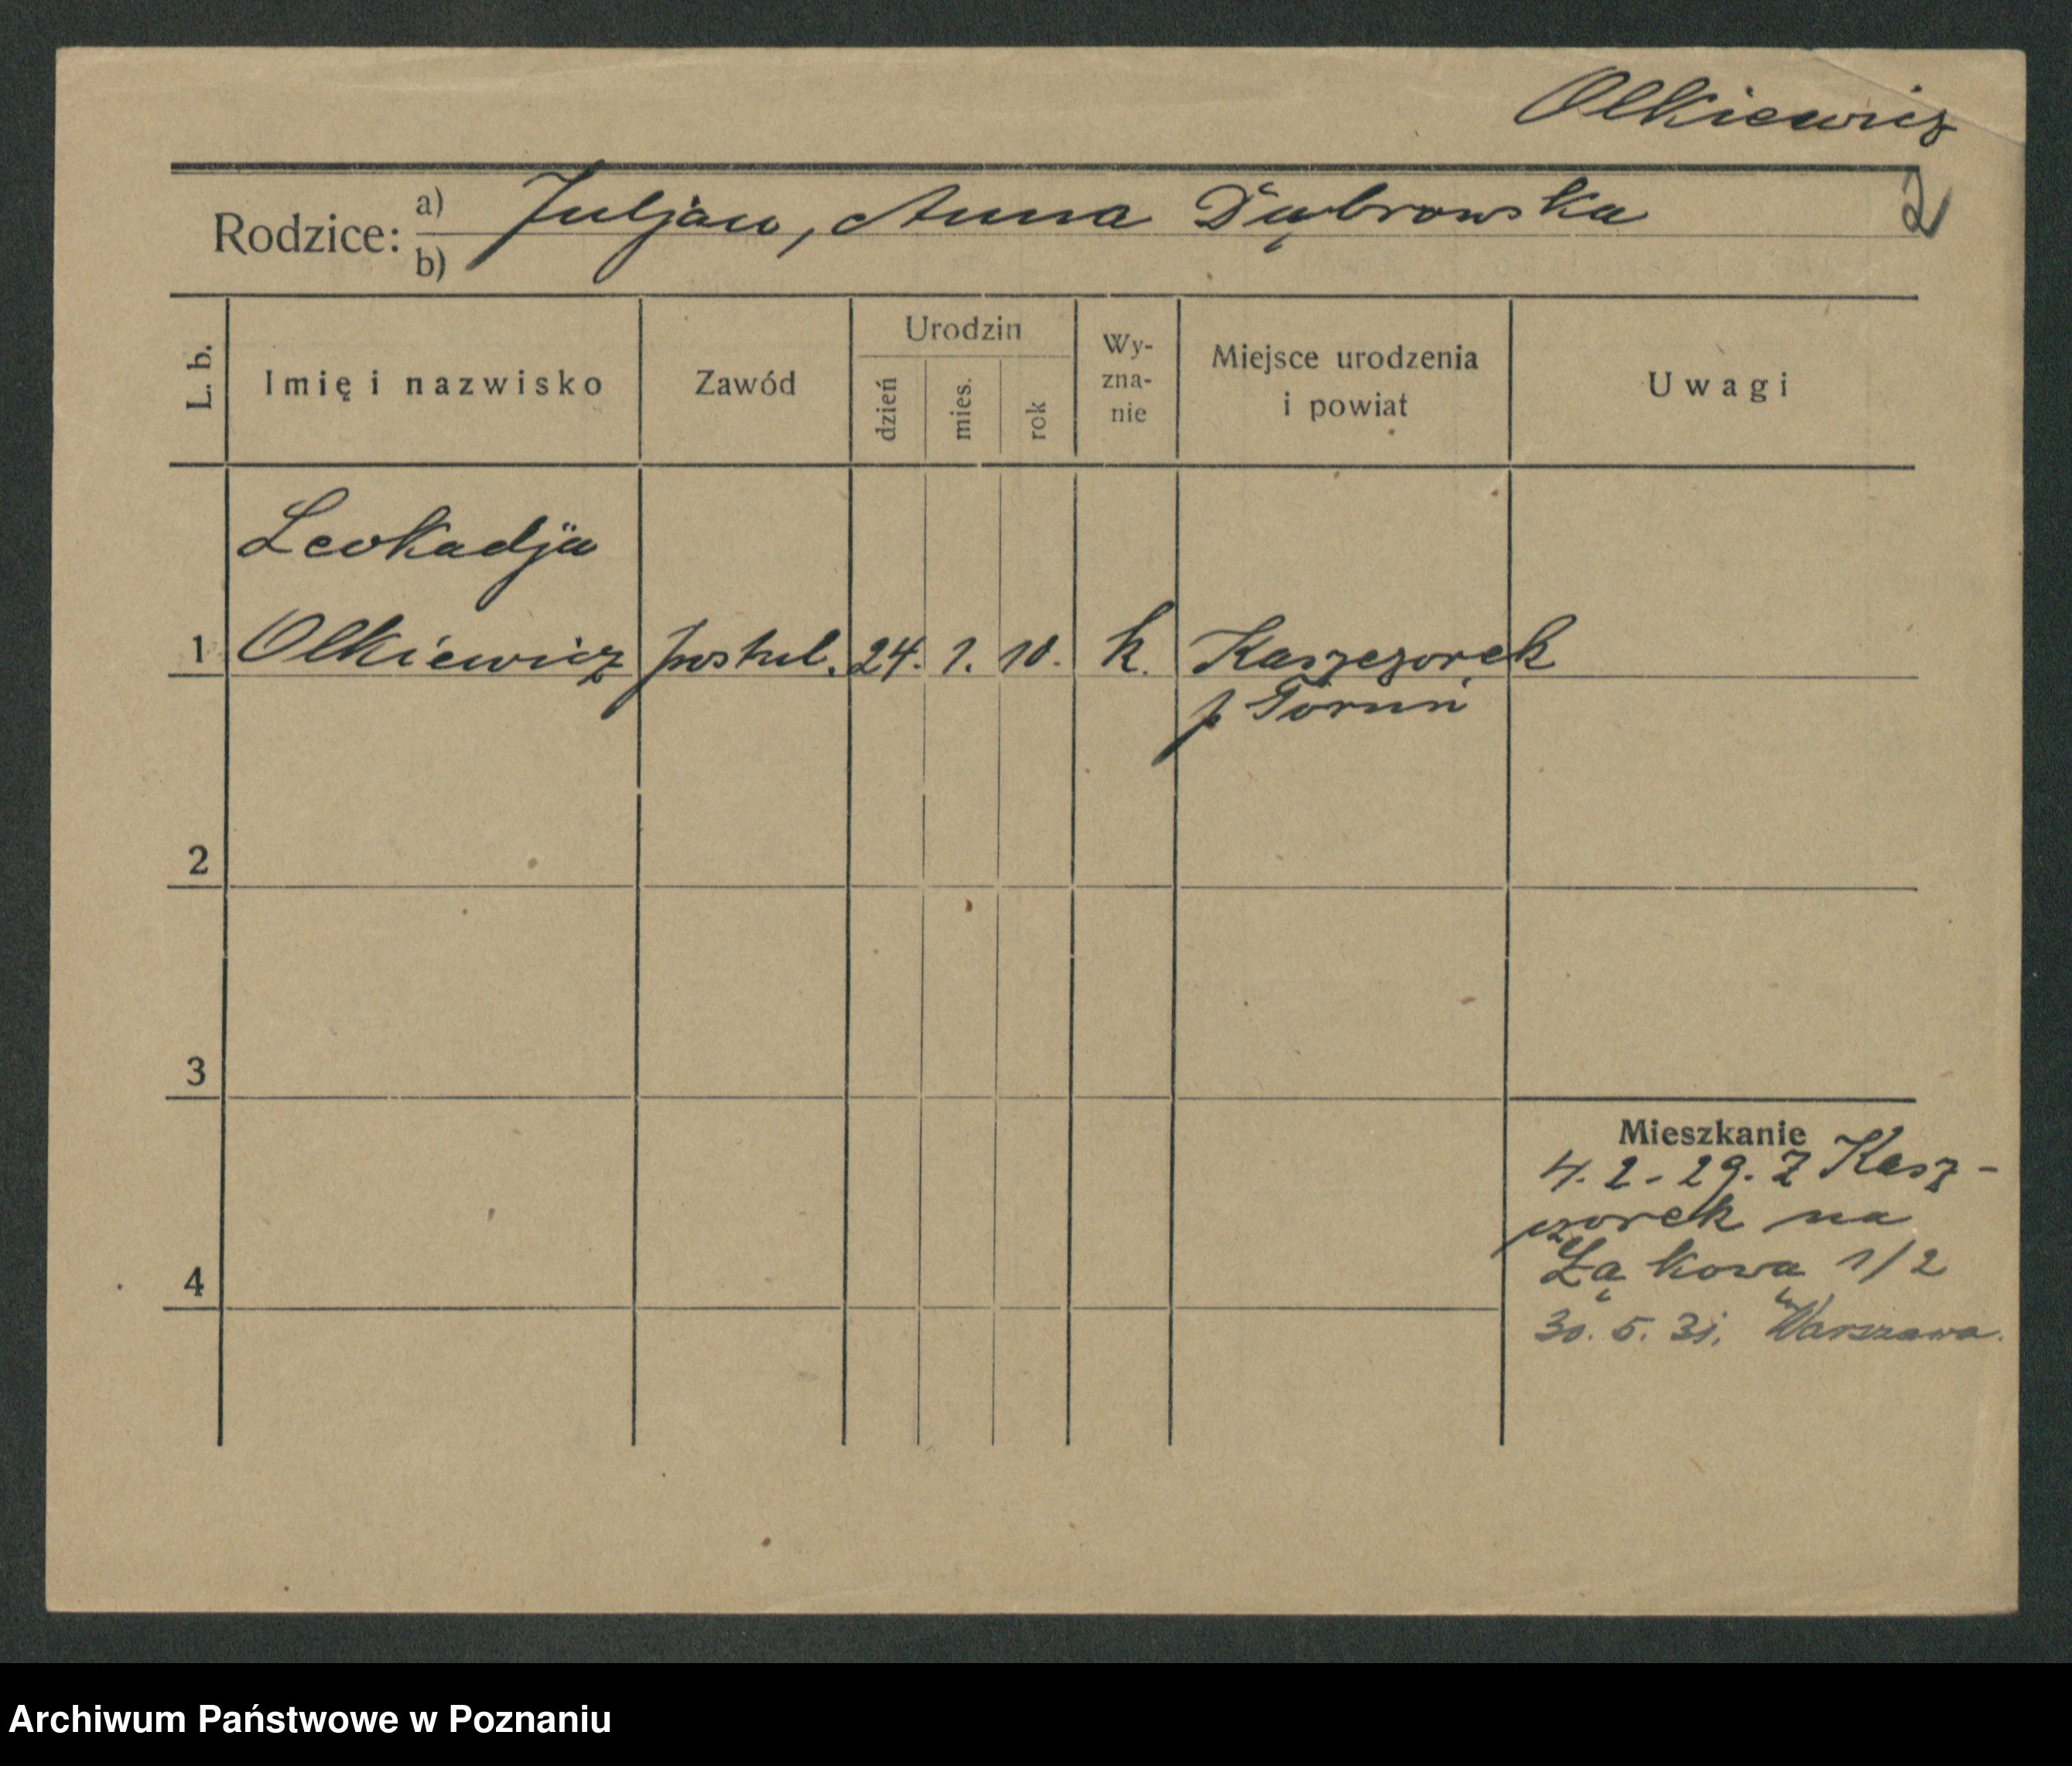 Olkiewicz
2
Rodzice: a) b) Juljan, Anna Dąbrowska
L. b.
Imię i nazwisko
Zawód
Urodzin
dzień
mies.
rok
Wy-
zna-
nie
Miejsce urodzenia
i powiat
Uwagi
Leokadja
1 Olkiewicz postul. 24. 1. 10. k. Kaszczorek
p Toruń
2
3
4
Mieszkanie
4.2.29. Z Kasz-
czorek na
Łąkowa 1/2
30.5.31. Warszawa.
Archiwum Państwowe w Poznaniu